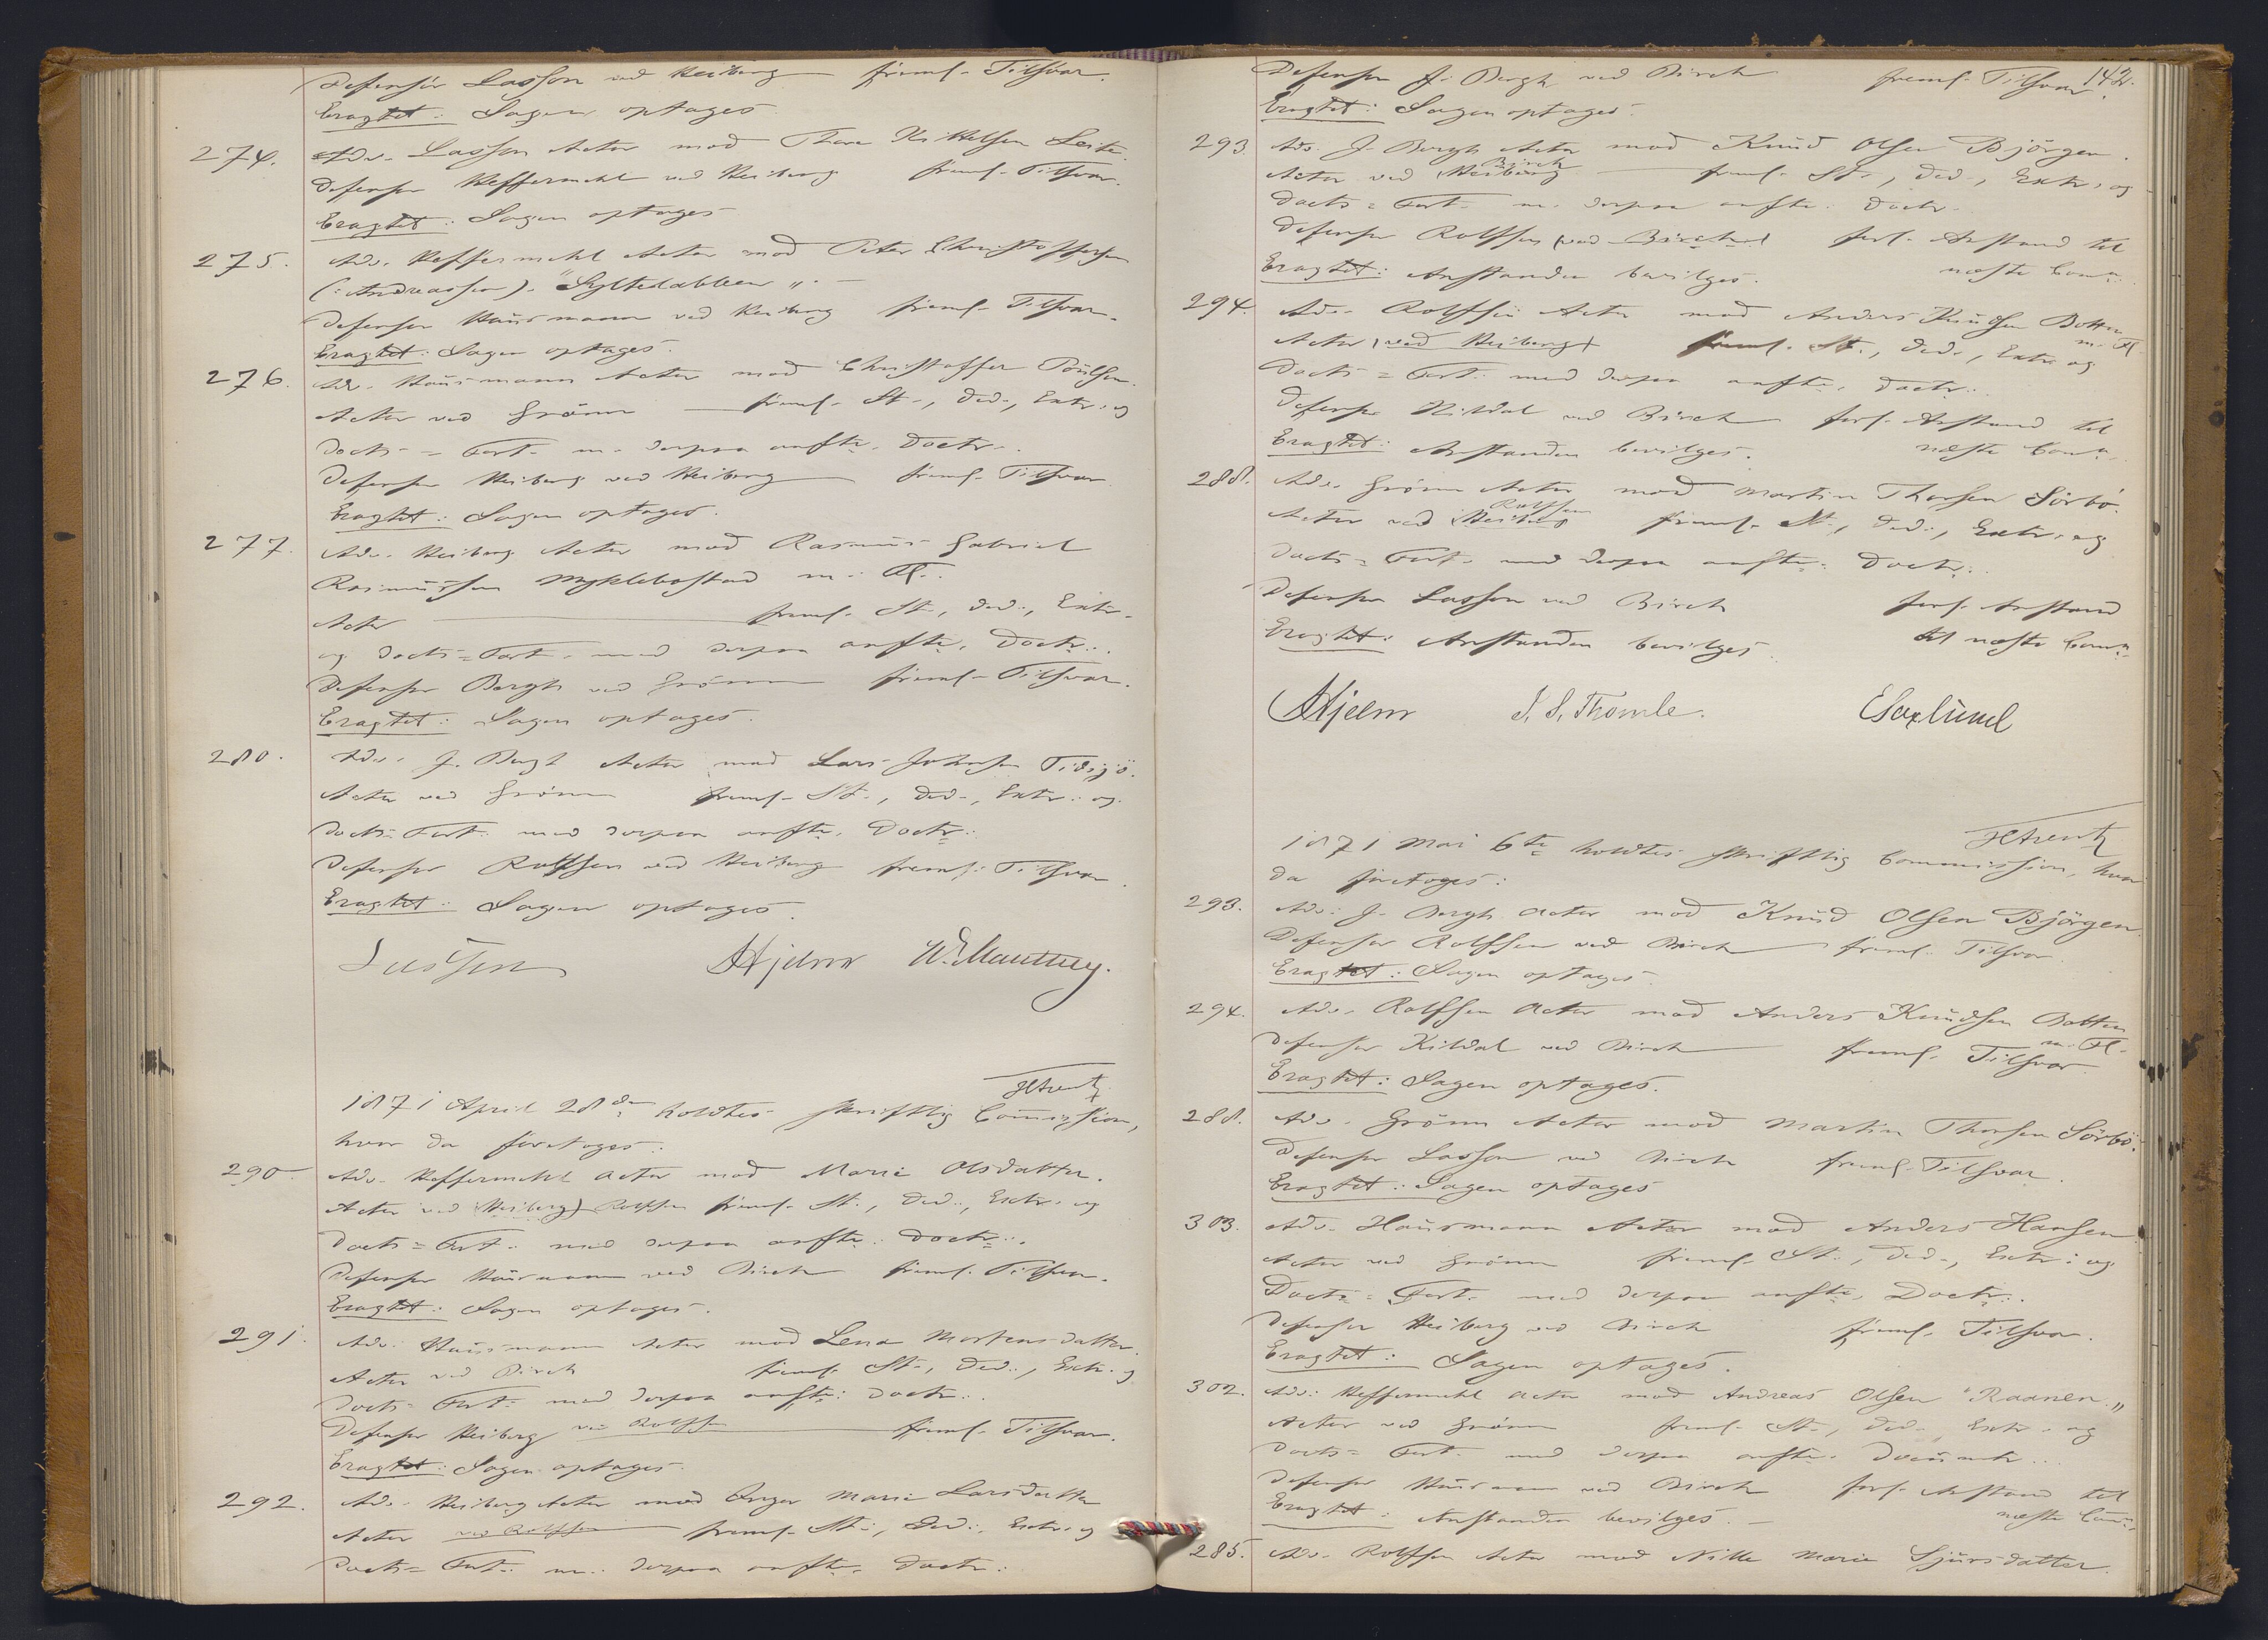 Defensor Lasson ved Heiberg freml. Tilsvar.
Eragtet: Sagen optages.
274. Adv. Lasson Actor mod Thore Kittelsen Leite.
Defensor Heffermehl ved Heiberg freml. Tilsvar.
Eragtet: Sagen optages
275. Adv. Heffermehl Actor mod Peter Christoffersen
(: Andreassen). "Syltelabben".
Defensor Hausmann ved Heiberg freml. Tilsvar.
Eragtet: Sagen optages.
276. Adv. Hausmann Actor mod Christoffer Poulsen.
Actor ved Grönn freml. St., Ded., Extr. og
Docts = Fort. m. derpaa anfte. Doctr.
Defensor Heiberg ved Heiberg freml. Tilsvar
Eragtet: Sagen optages.
277. Adv. Heiberg Actor mod Rasmus Gabriel
Rasmussen Myklebostad m. Fl.
Actor freml. St., Ded., Extr.
og Docts = Fort. med derpaa anfte. Doctr.
Defensor Bergh ved Grönn freml. Tilsvar.
Eragtet: Sagen optages.
280. Adv. J. Bergh Actor mod Lars Johnsen Tidsjö.
Actor ved Grönn freml. St., Ded., Extr. og
Docts = Fort. med derpaa anfte. Doctr.
Defensor Rolfsen ved Heiberg freml. Tilsvar.
Eragtet: Sagen optages.
Lasson Hjelm W. Manthey.
HArentz
1871 April 28de holdtes skriftlig Commission,
hvor da foretoges:
290. Adv. Heffermehl Actor mod Marie Olsdatter.
Actor ved (Heiberg) Rolfsen freml. St., Ded., Extr. og
Docts = Fort. med derpaa anfte. Doctr.
Defensor Hausmann ved Birch freml. Tilsvar.
Eragtet: Sagen optages.
291. Adv. Hausmann Actor mod Lena Mortensdatter.
Actor ved Birch freml. St., Ded., Extr. og
Docts = Fort. med derpaa anfte. Doctr.
Defensor Heiberg ved Rolfsen freml. Tilsvar.
Eragtet: Sagen optages.
292. Adv. Heiberg Actor mod Inger Marie Larsdatter
Actor ved Rolfsen freml. St., Ded., Extr. og
Docts = Fort. m. derpaa anfte. Doctr.
142.
Defensor J. Bergh ved Birch freml. Tilsvar.
Eragtet: Sagen optages.
293. Adv. J. Bergh Actor mod Knud Olsen Björgen.
Birch
Actor ved Heiberg freml. St., Ded., Extr. og
Docts = Fort. m. derpaa anfte. Doctr.
Defensor Rolfsen (ved Birch) forl. Anstand til
Eragtet: Anstanden bevilges. næste Comn.
294. Adv. Rolfsen Actor mod Anders Knudsen Botten
m. Fl.
Actor (ved Heiberg) freml. St., Ded., Extr. og
Docts = Fort. med derpaa anfte. Doctr.
Defensor Kildal ved Birch forl. Anstand til
Eragtet: Anstanden bevilges. næste Comn.
288. Adv. Grönn Actor mod Martin Thorsen Sörbö.
Rolfsen
Actor ved Heiberg freml. St., Ded., Extr. og
Docts = Fort. med derpaa anfte. Doctr.
Defensor Lasson ved Birch forl. Anstand
Eragtet: Anstanden bevilges. til næste Comn.
Hjelm J. S. Thomle. ESaxlund
HArentz
1871 Mai 6te holdtes skriftlig Commission, hvor
da foretoges:
293. Adv. J. Bergh Actor mod Knud Olsen Björgen
Defensor Rolfsen ved Birch freml. Tilsvar.
Eragtet: Sagen optages.
294. Adv. Rolfsen Actor mod Anders Knudsen Botten
m. Fl.
Defensor Kildal ved Birch freml. Tilsvar
Eragtet: Sagen optages.
288. Adv. Grönn Actor mod Martin Thorsen Sörbö.
Defensor Lasson ved Birch freml. Tilsvar.
Eragtet: Sagen optages
303. Adv. Hausmann Actor mod Anders Hansen.
Actor ved Grönn freml. St., Ded., Extr. og
Docts = Fort. med derpaa anfte. Doctr.
Defensor Heiberg ved Birch freml. Tilsvar.
Eragtet: Sagen optages.
302. Adv. Heffermehl Actor mod Andreas Olsen "Raanen"
Actor ved Grönn freml. St., Ded., Extr. og
Docts = Fort. med derpaa anfte. Documtr.
Defensor Hausmann ved Birch forl. Anstand til
Eragtet: Anstanden bevilges. næste Comn.
285. Adv. Rolfsen Actor mod Nille Marie Sjursdatter.